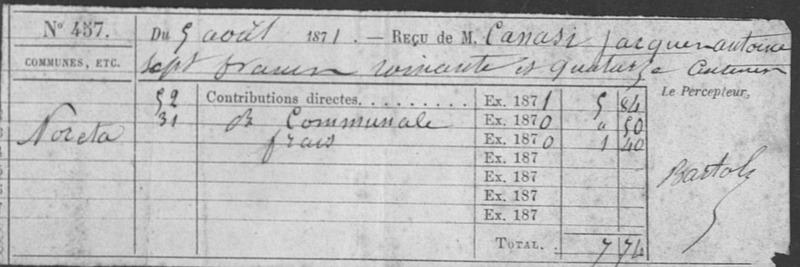 No 457. Du 5 août 1871. — Reçu de M. Canasi Jacques antoine
COMMUNES, ETC. sept francs soixante et quatorze centimes
Le Percepteur,
52 Contributions directes. . . . . . . . . Ex. 1871 5 84
Noceta 31 Communale Ex. 1870 " 50
frais Ex. 1870 1 40
Ex. 187
Bartoli
Ex. 187
Ex. 187
Ex. 187
TOTAL. . 7 74